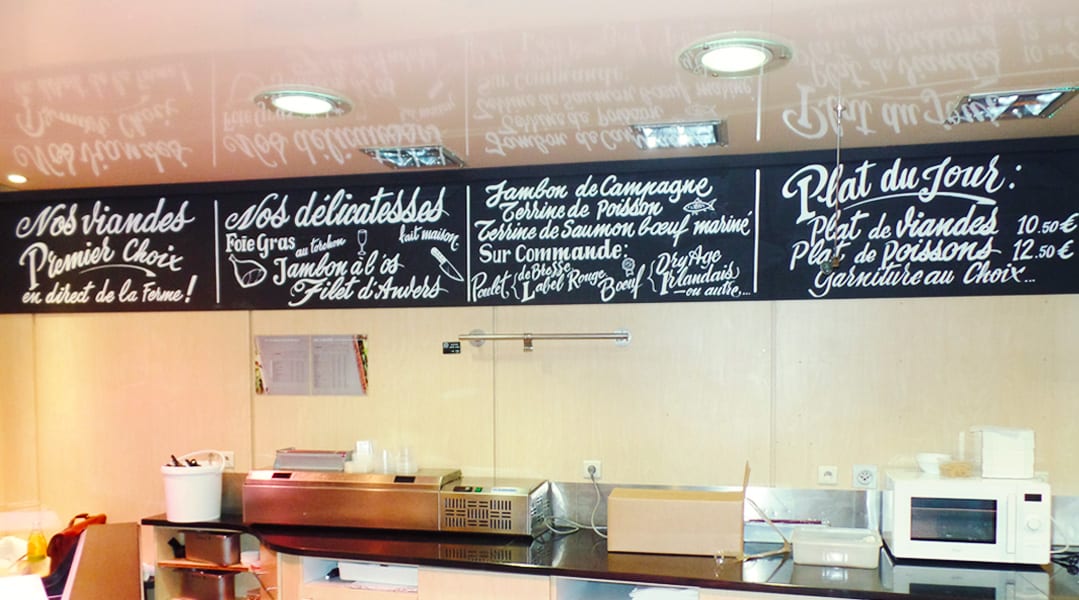 Nos viandes
Premier Choix
en direct de la Ferme!
Nos délicatesses
Foie Gras au torchon fait maison.
Jambon à l'os
Filet d'Anvers
Jambon de Campagne
Terrine de Poisson
Terrine de Saumon bœuf mariné
Sur Commande:
Poulet { de Bresse
Label Rouge
Bœuf { Dry Age
Irlandais
— ou autre...
Plat du Jour:
Plat de viandes 10.50€
Plat de poissons 12.50€
Garniture au Choix...